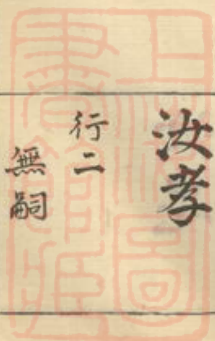 汝孝
行二
無嗣